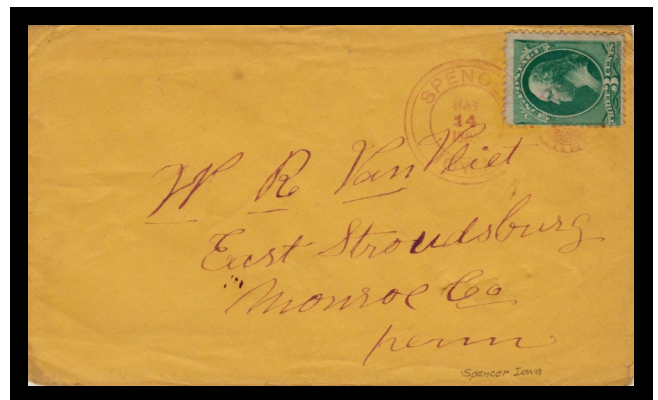 SPENCE
MAY
14
W R Van Vliet
East Stroudsburg
Monroe Co
penn
Spencer Iowa